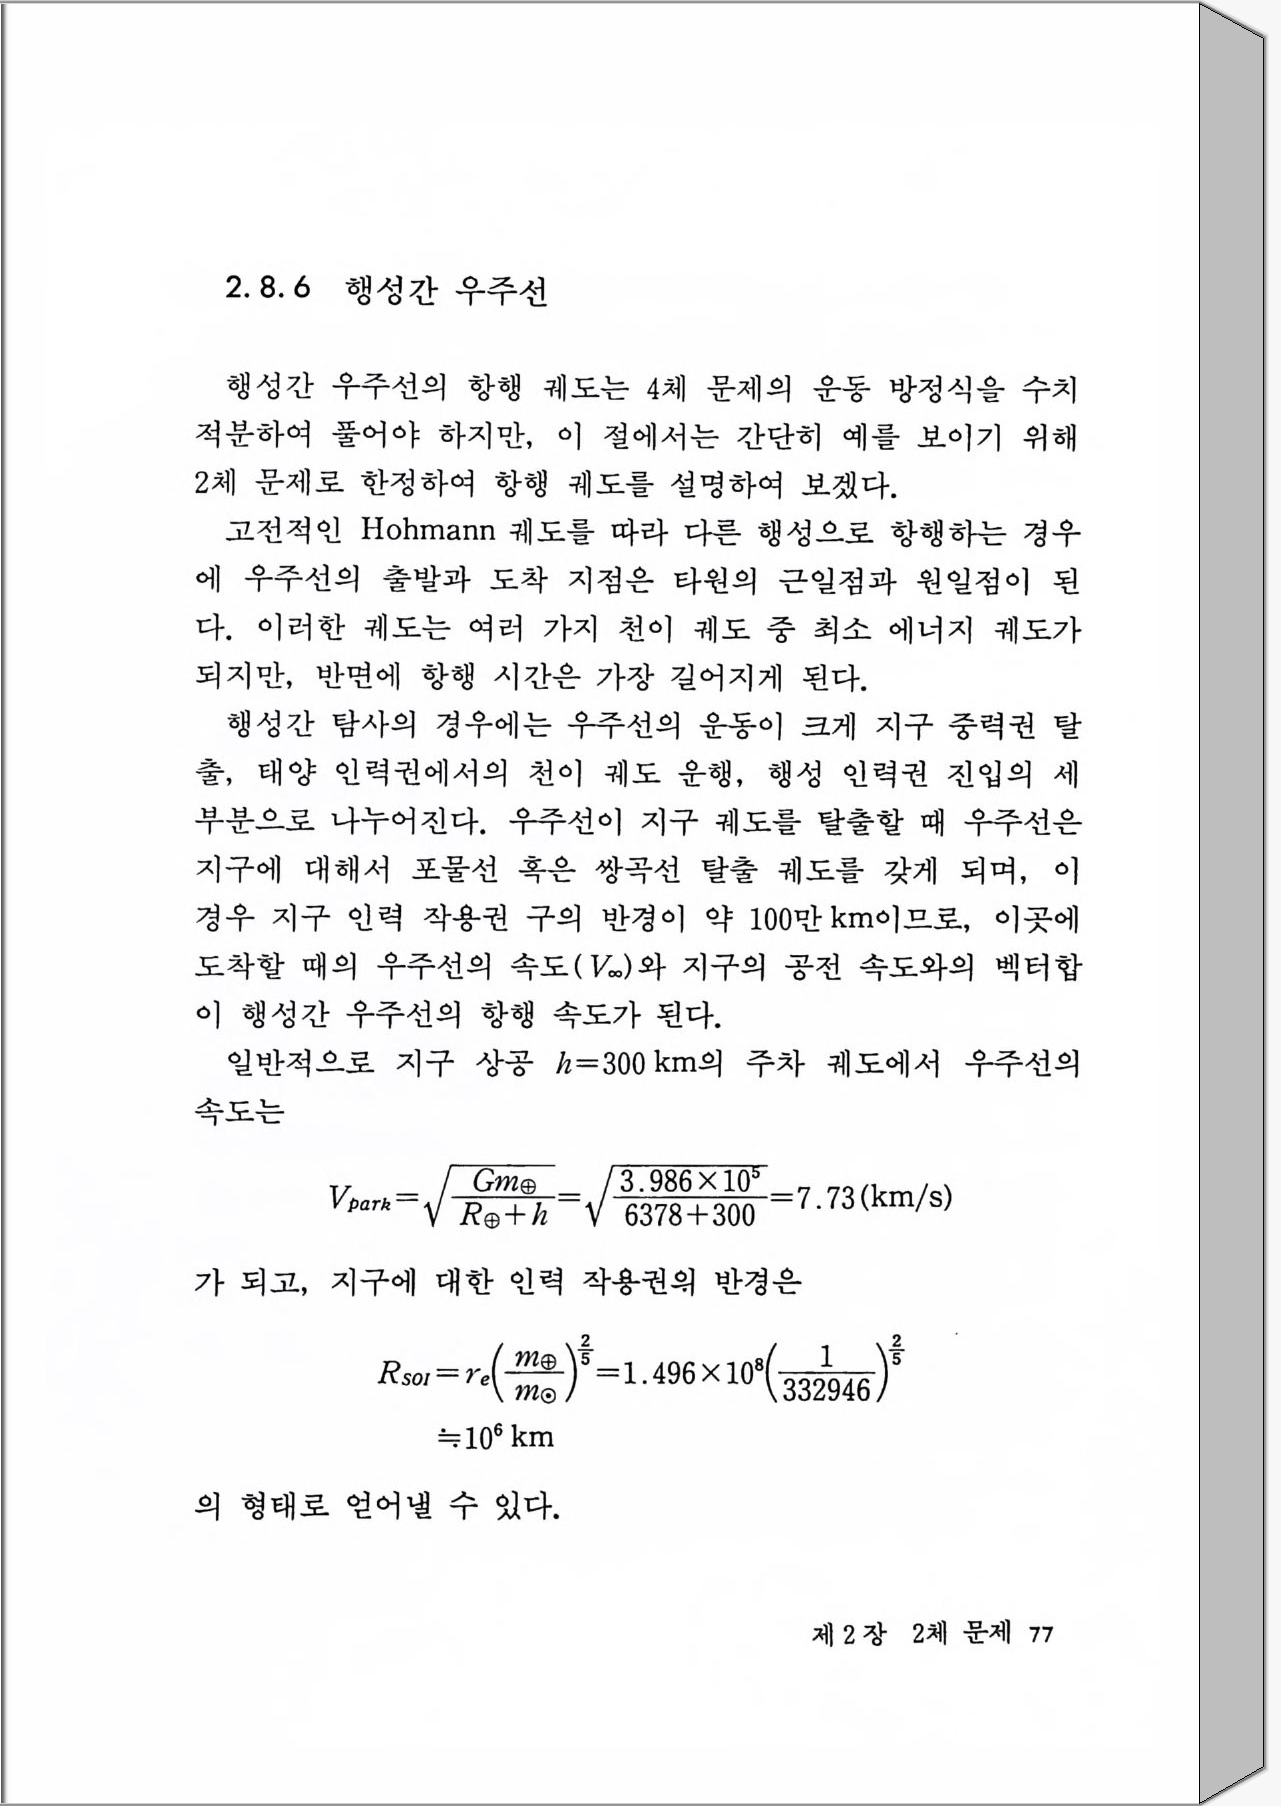 2.8.6 행성간 우주선
행성간 우주선의 항행 궤도는 4체 문제의 운동 방정식을 수치
적분하여 풀어야 하지만, 이 절에서는 간단히 예를 보이기 위해
2체 문제로 한정하여 항행 궤도를 설명하여 보겠다.
고전적인 Hohmann 궤도를 따라 다른 행성으로 항행하는 경우
에 우주선의 출발과 도착 지점은 타원의 근일점과 원일점이 된
다. 이러한 궤도는 여러 가지 천이 궤도 중 최소 에너지 궤도가
되지만, 반면에 항행 시간은 가장 길어지게 된다.
행성간 탐사의 경우에는 우주선의 운동이 크게 지구 중력권 탈
출, 태양 인력권에서의 천이 궤도 운행, 행성 인력권 진입의 세
부분으로 나누어진다. 우주선이 지구 궤도를 탈출할 때 우주선은
지구에 대해서 포물선 혹은 쌍곡선 탈출 궤도를 갖게 되며, 이
경우 지구 인력 작용권 구의 반경이 약 100만 km이므로, 이곳에
도착할 때의 우주선의 속도(V∞)와 지구의 공전 속도와의 벡터합
이 행성간 우주선의 항행 속도가 된다.
일반적으로 지구 상공 h=300 km의 주차 궤도에서 우주선의
속도는
V_park=√(Gm⊕/(R⊕+h))=√((3.986×10⁵)/(6378+300))=7.73(km/s)
가 되고, 지구에 대한 인력 작용권의 반경은
R_SOI=r_e(m⊕/m⊙)^(2/5)=1.496×10⁸(1/332946)^(2/5)
≒10⁶ km
의 형태로 얻어낼 수 있다.
제2장 2체 문제 77